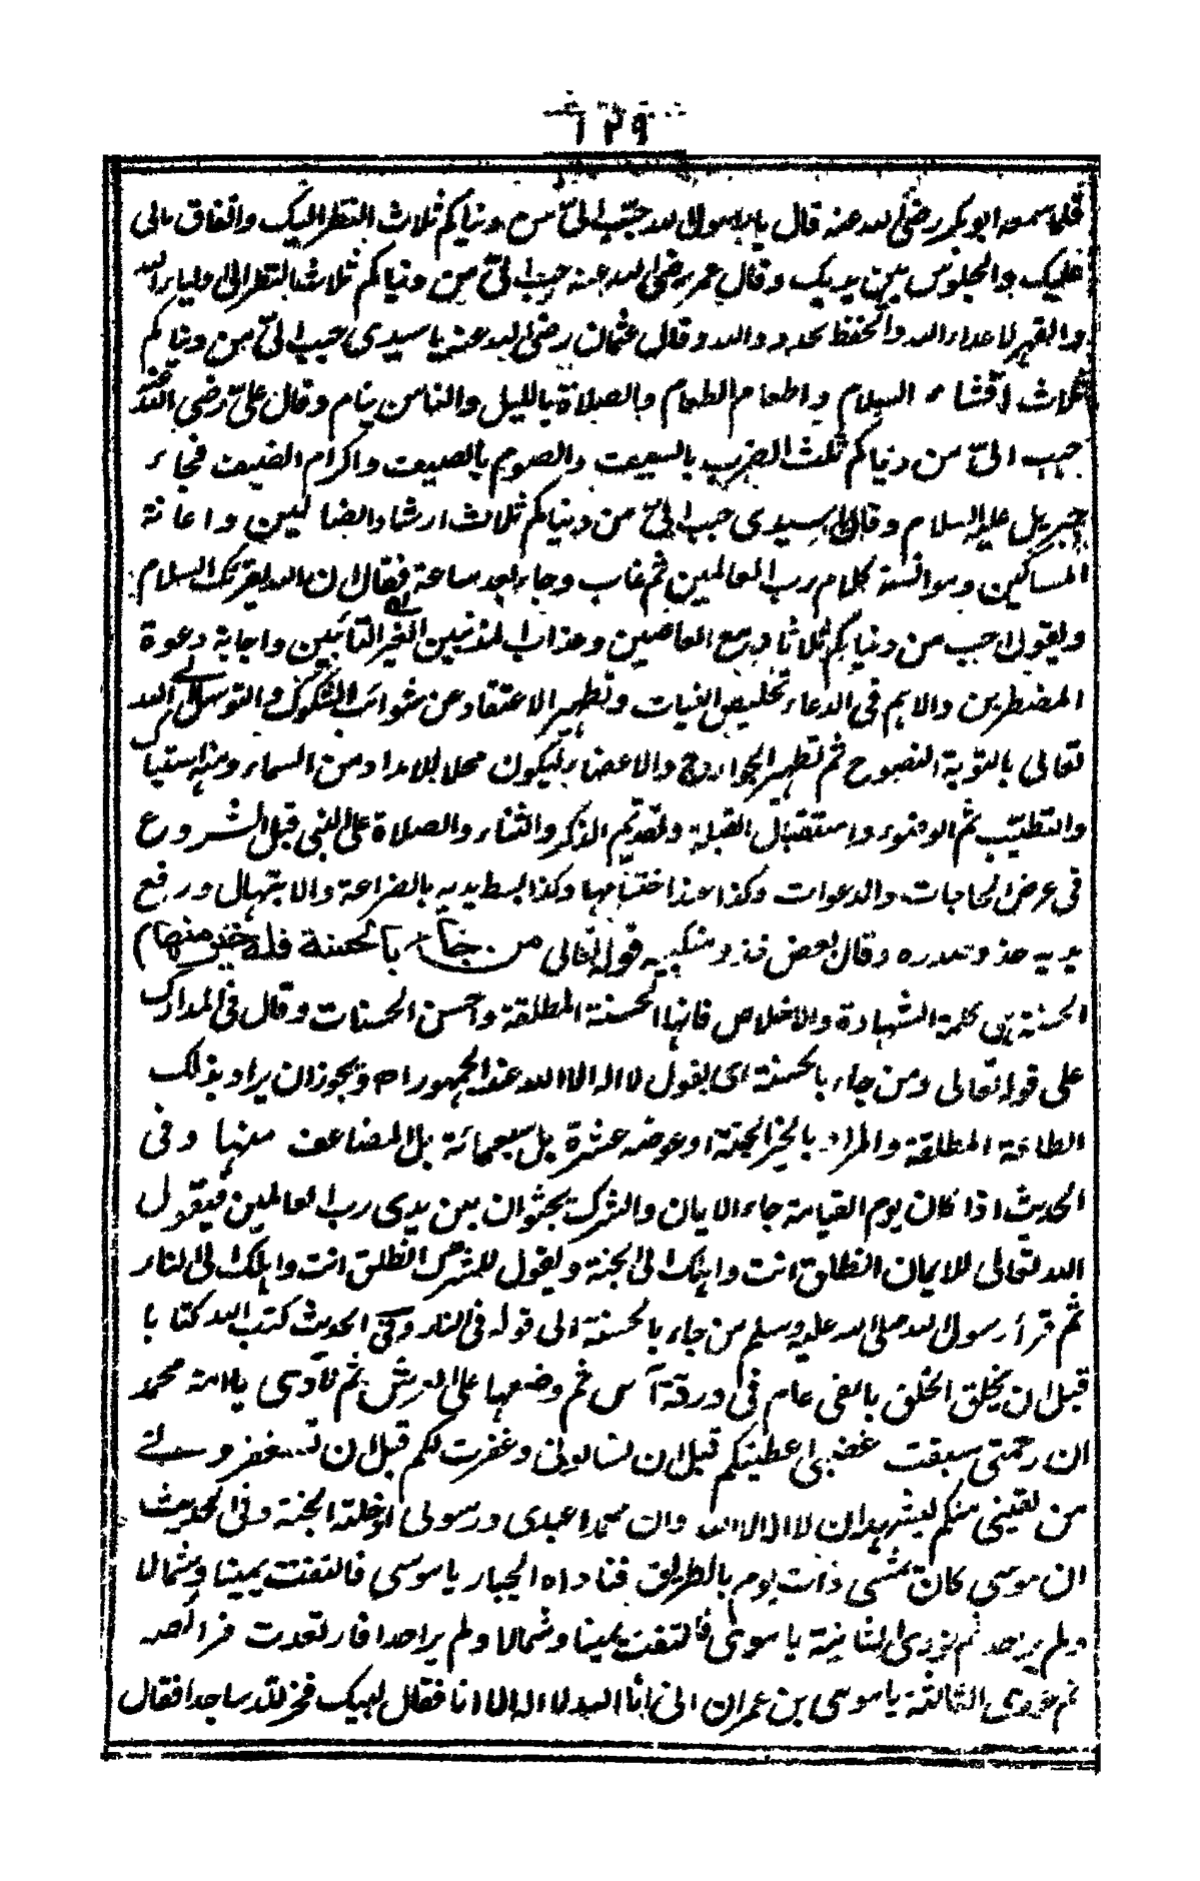 ١٢٩
فلما سمعه ابو بكر رضى الله عنه قال يا رسول الله حبب الىّ من دنياكم ثلاث النظر اليك وانفاق مالى
عليك والجلوس بين يديك وقال عمر رضى الله عنه حبب الىّ من دنياكم ثلاث النظر الى اولياء الله
والقهر لاعداء الله والحفظ لحدود الله وقال عثمان رضى الله عنه يا سيدى حبب الىّ من دنياكم
ثلاث افشاء السلام واطعام الطعام والصلاة بالليل والناس نيام وقال علىّ رضى الله عنه
حبب الىّ من دنياكم ثلث الضرب بالسيف والصوم بالصيف واكرام الضيف فجاء
جبريل عليه السلام وقال يا سيدى حبب الىّ من دنياكم ثلاث ارشاد الضالين واعانة
المساكين وموانسة كلام رب العالمين ثم غاب وجاء بعد ساعة فقال ان الله يقرئك السلام
ويقول احب من دنياكم ثلاثا دمع العاصين وعذاب المذنبين الغير التائبين واجابة دعوة
المضطرين والاهم فى الدعاء تخليص النيات وتطهير الاعتقاد عن شوائب الشكوك والتوسل الى الله
تعالى بالتوبة النصوح ثم تطهير الجوارح والاعضاء ليكون محلا للامداد من السماء ومنه استياك
والتطيّب ثم الوضوء واستقبال القبلة وتقديم الذكر والثناء والصلاة على النبى قبل الشروع
فى عرض الحاجات والدعوات وكذا عند اختتامها وكذا بسط يديه بالضراعة والابتهال ورفع
يديه حذو صدره وقال بعض حذو منكبيه قوله تعالى من جاء بالحسنة فله خير منها م
الحسنة هى كلمة الشهادة والاخلاص فانها الحسنة المطلقة واحسن الحسنات وقال فى المدارك
على قوله تعالى ومن جاء بالحسنة اى بقول لا اله الا الله عند الجمهور اه ويجوز ان يراد بذلك
الطاعة المطلقة والمراد بالخير الجنة او عوضه عشرة بل سبعمائة بل المضاعف منها وفى
الحديث اذا كان يوم القيامة جاء الايمان والشرك يجثوان بين يدى رب العالمين فيقول
الله تعالى للايمان انطلق انت واهلك الى الجنة ويقول للشرك انطلق انت واهلك الى النار
ثم قرأ رسول الله صلى الله عليه وسلم من جاء بالحسنة الى قوله فى النار وفى الحديث كتب الله كتابا
قبل ان يخلق الخلق بالفى عام فى ورقة آس ثم وضعها على العرش ثم نادى يا امة محمد
ان رحمتى سبقت غضبى اعطيتكم قبل ان تسالونى وغفرت لكم قبل ان تستغفرونى
من لقينى منكم يشهد ان لا اله الا الله وان محمدا عبدى ورسولى ادخلته الجنة وفى الحديث
ان موسى كان يمشى ذات يوم بالطريق فناداه الجبار يا موسى فالتفت يمينا وشمالا
ولم ير احد ثم نودى الثانية يا موسى فالتفت يمينا وشمالا ولم ير احدا فارتعدت فرائصه
ثم نودى الثالثة يا موسى بن عمران انى انا الله لا اله الا انا فقال لبيك فخر لله ساجدا فقال